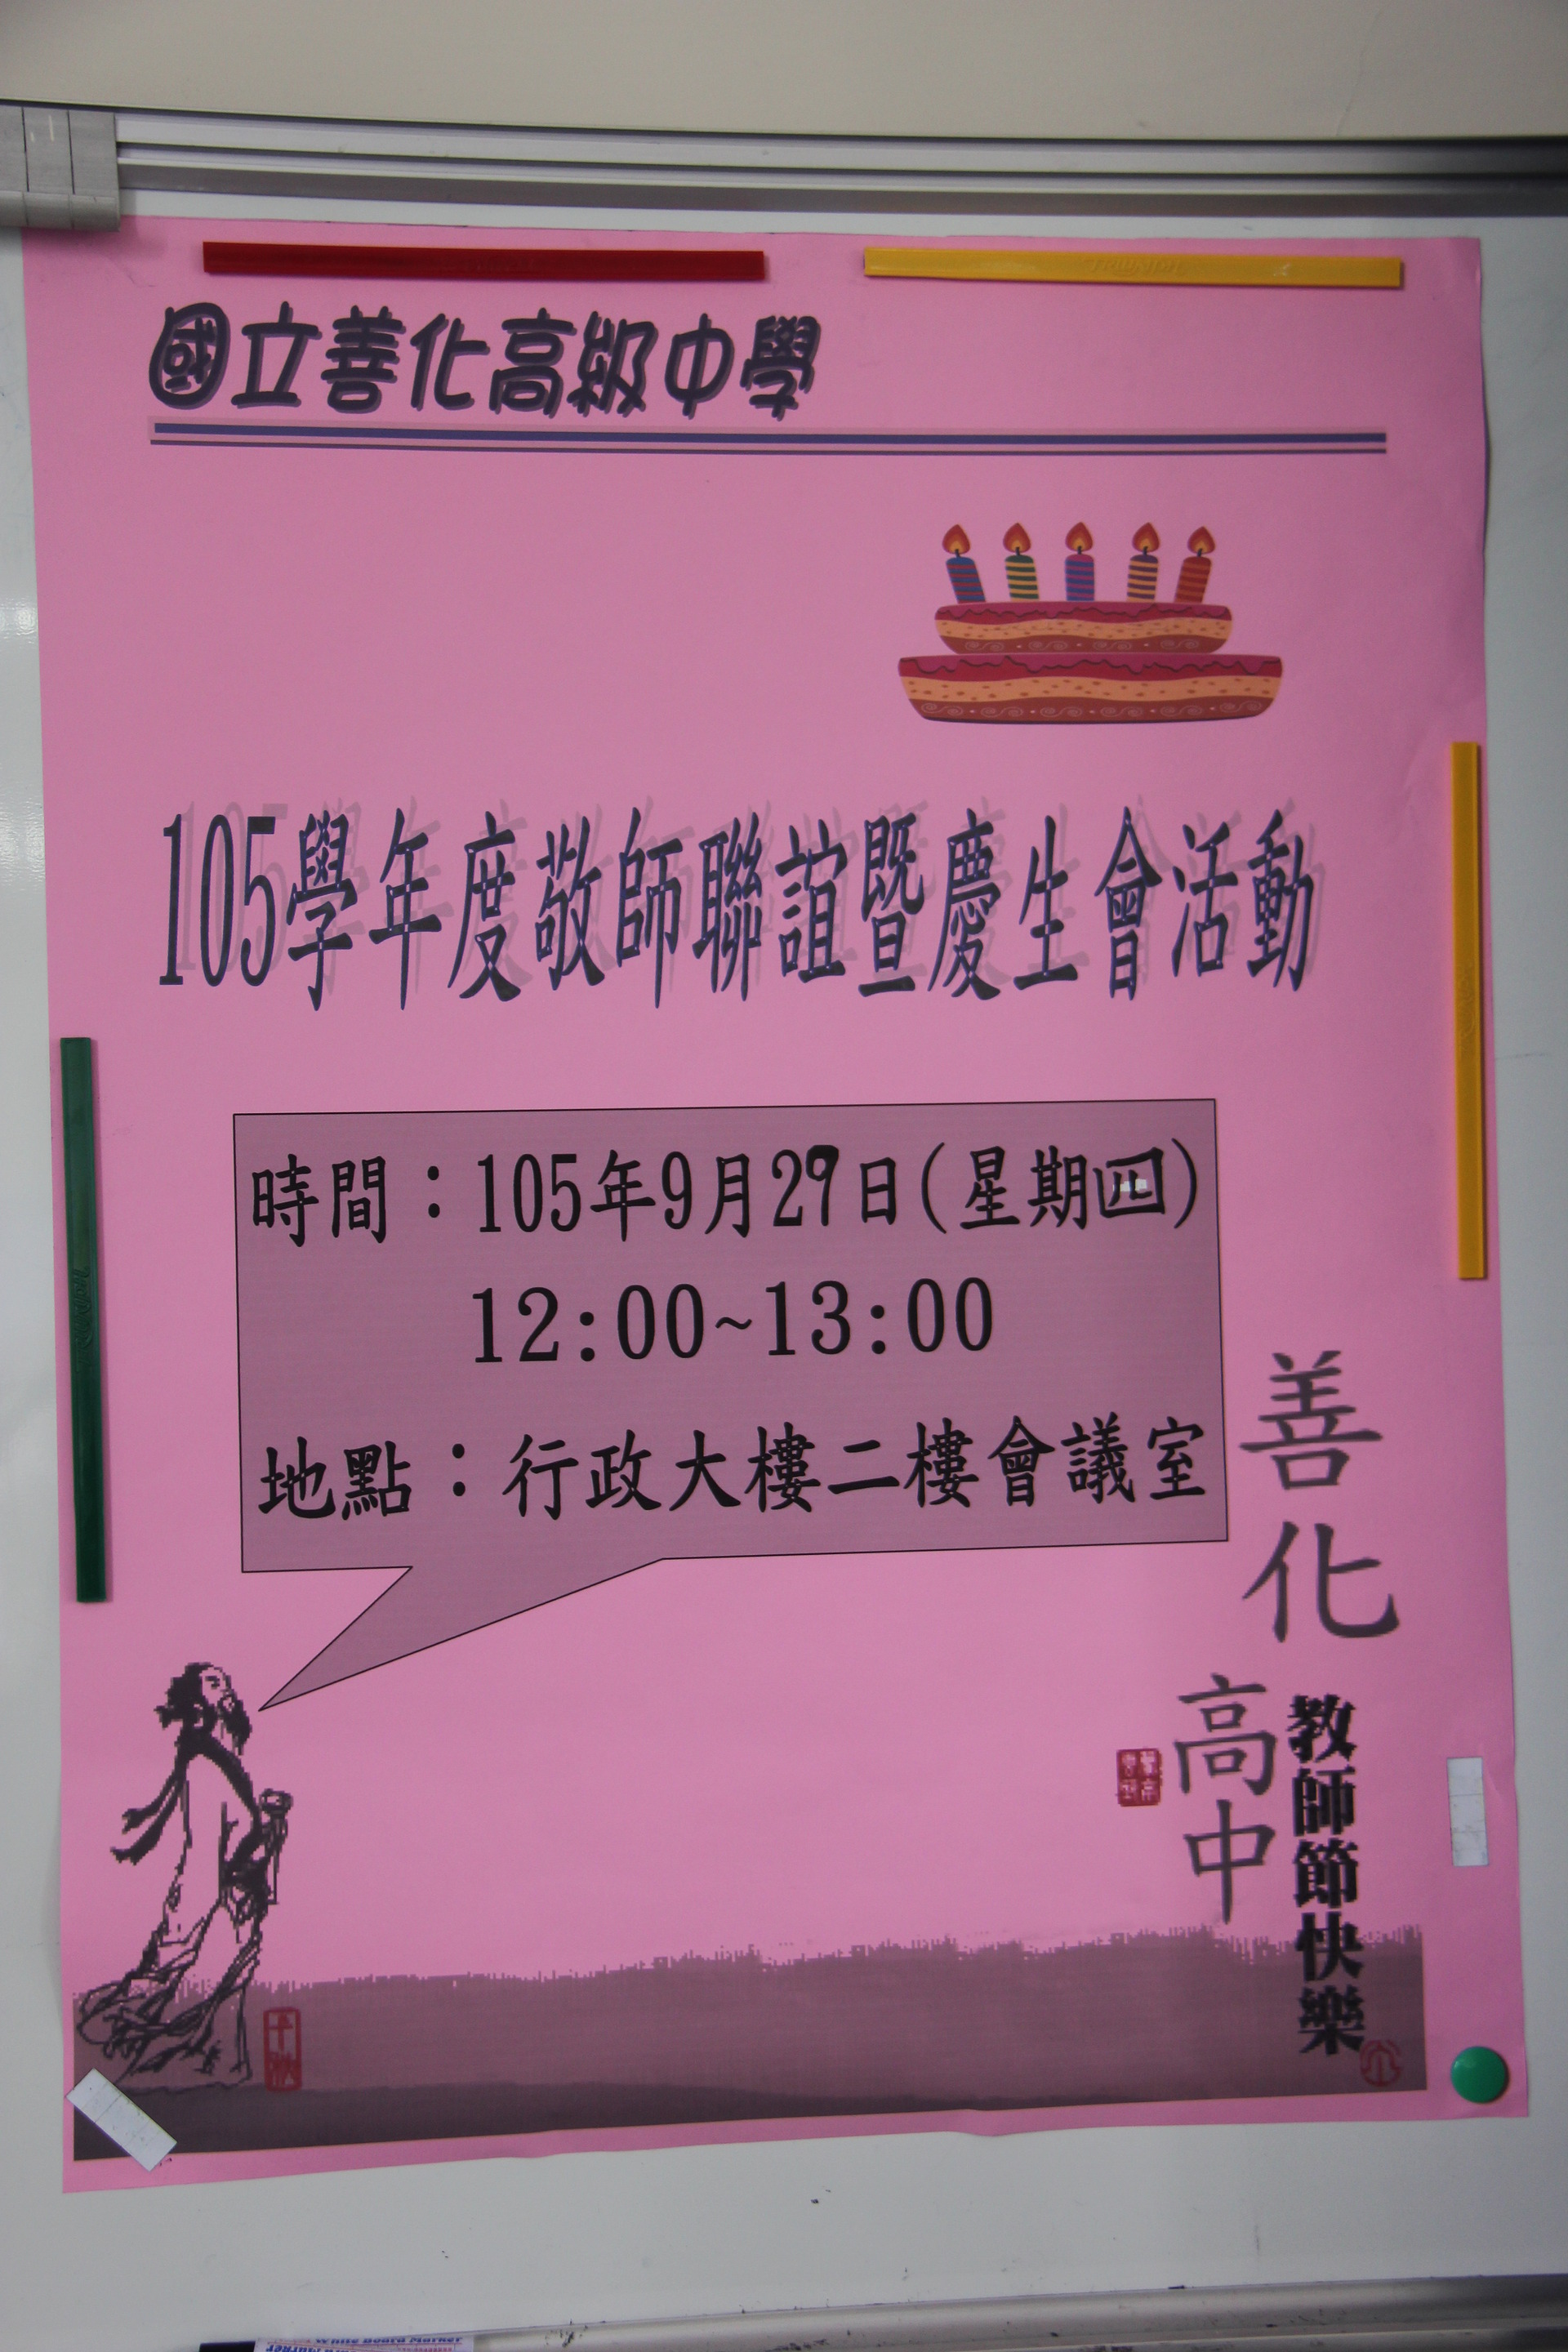 國立善化高級中學
105學年度敬師聯誼暨慶生會活動
時間：105年9月29日(星期四)
12:00~13:00
地點：行政大樓二樓會議室
善化
高中
教師節快樂
千秋
White Board Marker